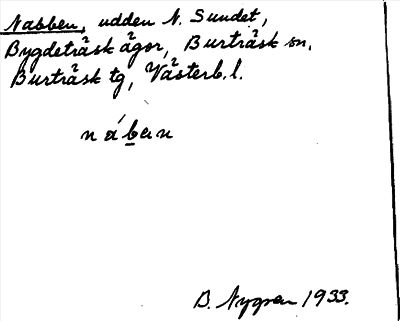 Nabben, udden N. Sundet,
Bygdeträsk ägor, Burträsk sn.
Burträsk tg, Västerb. l.
nában
B. Nygren 1933.